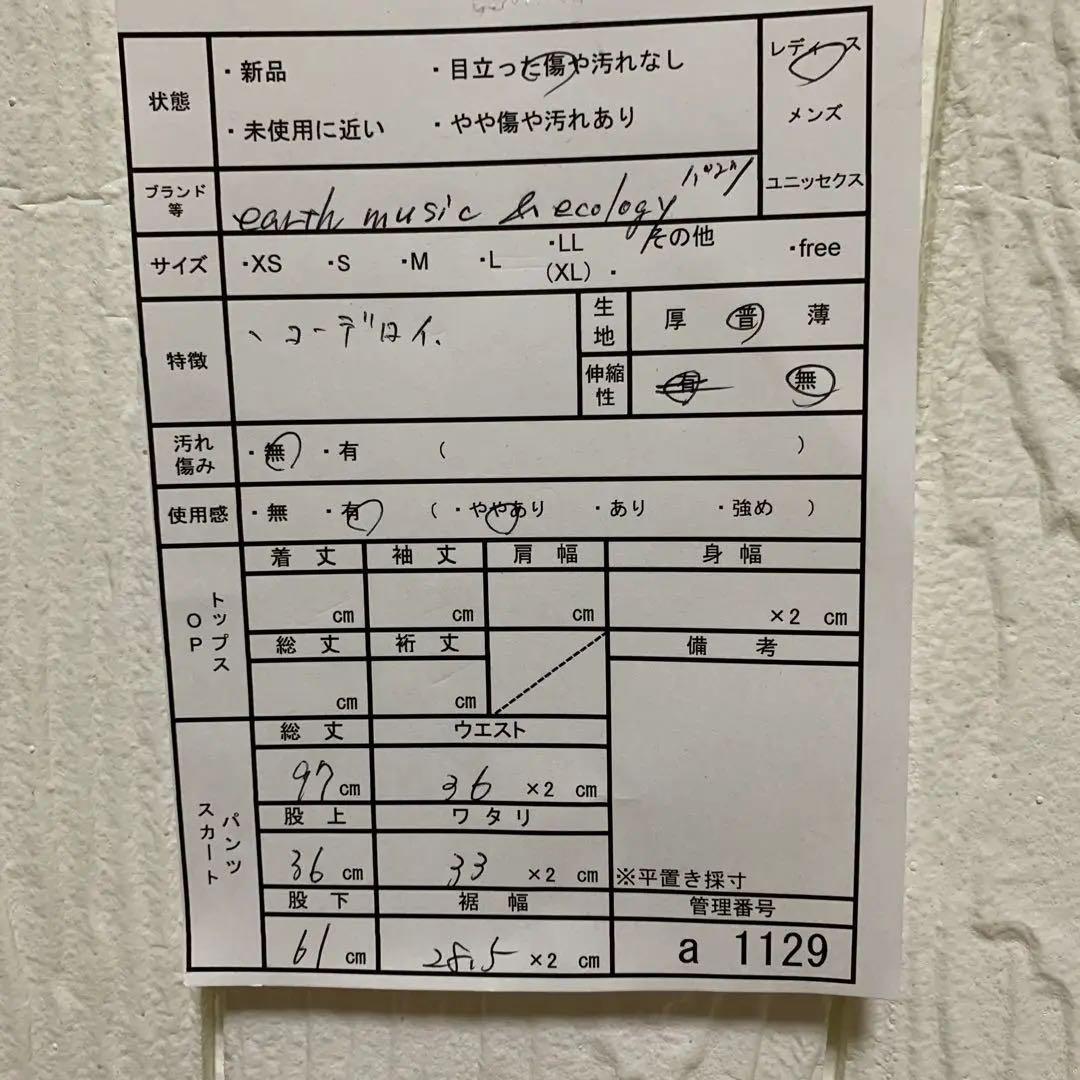 状態
・新品 ・目立った傷や汚れなし
・未使用に近い ・やや傷や汚れあり
レディース
メンズ
ユニッセクス
ブランド等
earth music & ecology パンツ
サイズ ・XS ・S ・M ・L ・LL (XL) ・その他 ・free
特徴
、コーデロイ.
生地 厚 普 薄
伸縮性 有 無
汚れ傷み ・無 ・有 ( )
使用感 ・無 ・有 ( ・ややあり ・あり ・強め )
トップス OP
着丈 袖丈 肩幅 身幅
cm cm cm ×2 cm
総丈 裄丈 備考
cm cm
パンツ スカート
総丈 ウエスト
97 cm 36 ×2 cm
股上 ワタリ
36 cm 33 ×2 cm ※平置き採寸
股下 裾幅 管理番号
61 cm 28.5 ×2 cm a 1129